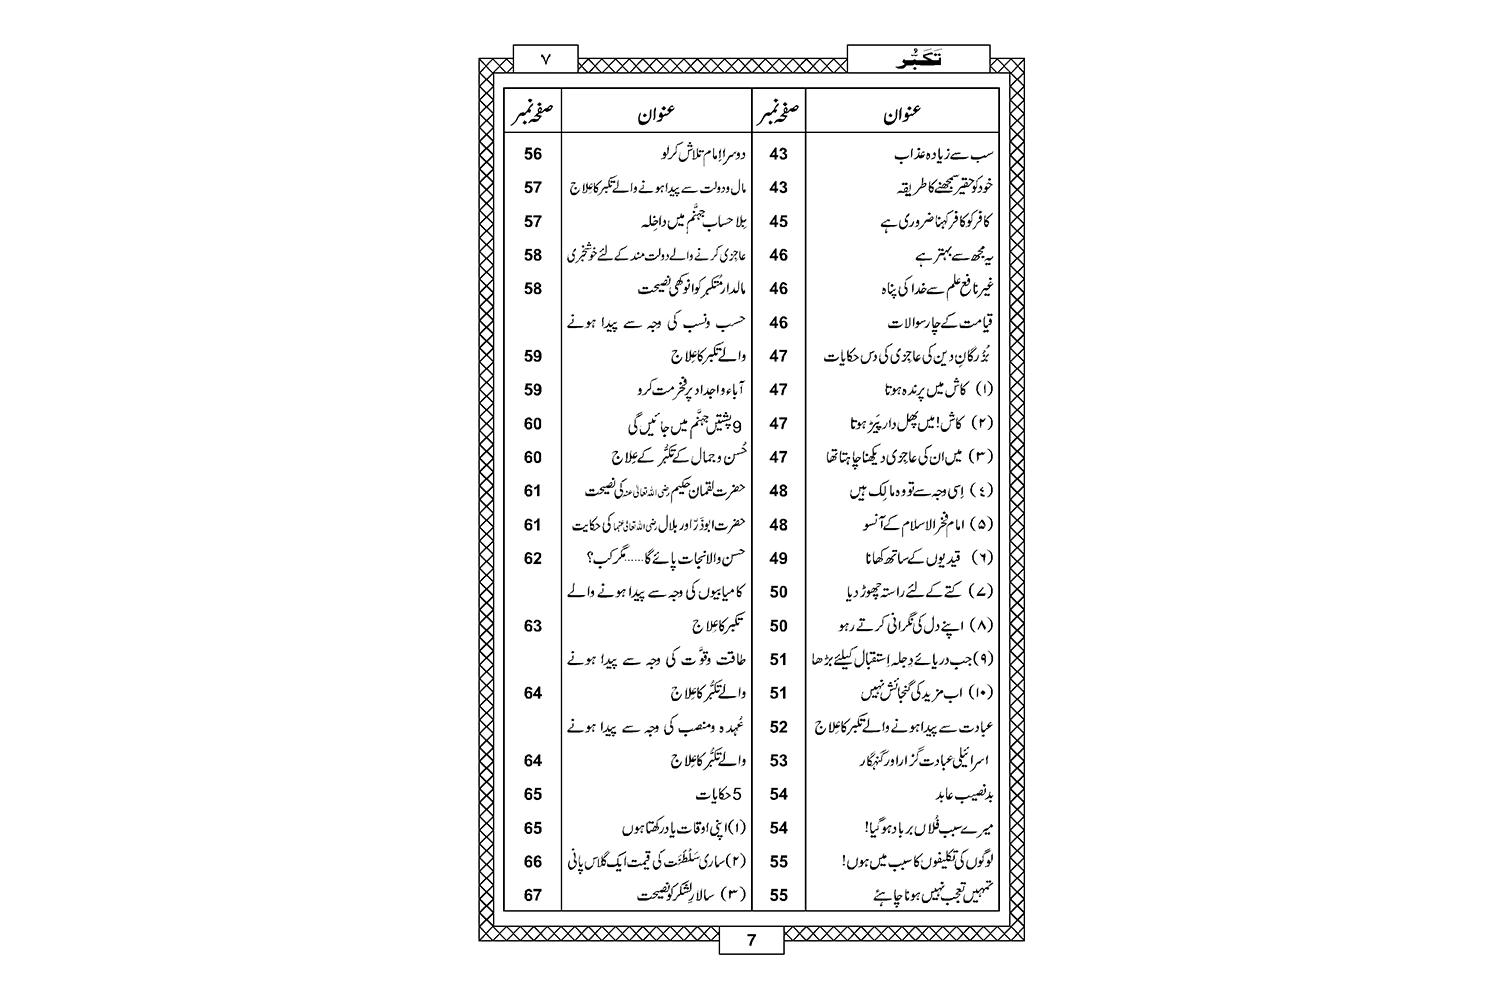 تَکَبُّر
۷
عنوان
صفحہ نمبر
سب سے زیادہ عذاب 43
خود کو حقیر سمجھنے کا طریقہ 43
کافر کو کافر کہنا ضروری ہے 45
یہ مجھ سے بہتر ہے 46
غیر نافع علم سے خدا کی پناہ 46
قیامت کے چار سوالات 46
بُزُرگانِ دین کی عاجزی کی دس حکایات 47
(۱) کاش میں پرندہ ہوتا 47
(۲) کاش! میں پھل دار پَیڑ ہوتا 47
(۳) میں ان کی عاجزی دیکھنا چاہتا تھا 47
(٤) اِسی وجہ سے تو وہ مالِک ہیں 48
(۵) امام فخر الاسلام کے آنسو 48
(٦) قیدیوں کے ساتھ کھانا 49
(۷) کتے کے لئے راستہ چھوڑ دیا 50
(۸) اپنے دل کی نگرانی کرتے رہو 50
(۹) جب دریائے دِجلہ اِستقبال کیلئے بڑھا 51
(۱۰) اب مزید کی گنجائش نہیں 51
عبادت سے پیدا ہونے والے تکبر کا عِلاج 52
اسرائیلی عبادت گزار اور گنہگار 53
بدنصیب عابد 54
میرے سبب فُلاں برباد ہوگیا! 54
لوگوں کی تکلیفوں کا سبب میں ہوں! 55
تمہیں تعجب نہیں ہونا چاہئے 55
عنوان
صفحہ نمبر
دوسرا اِمام تلاش کرلو 56
مال و دولت سے پیدا ہونے والے تکبر کا عِلاج 57
بِلا حساب جہنَّم میں داخِلہ 57
عاجزی کرنے والے دولت مند کے لئے خوشخبری 58
مالدار مُتکبر کو انوکھی نصیحت 58
حسب ونسب کی وجہ سے پیدا ہونے
والے تکبر کا عِلاج 59
آباء و اجداد پر فخر مت کرو 59
9 پشتیں جہنَّم میں جائیں گی 60
حُسن و جمال کے تکَبُّر کے عِلاج 60
حضرت لقمان حکیم رضی اللہ تعالیٰ عنہ کی نصیحت 61
حضرت ابوذَرّ اور بلال رضی اللہ تعالیٰ عنہما کی حکایت 61
حسن والا نجات پائے گا......مگر کب؟ 62
کامیابیوں کی وجہ سے پیدا ہونے والے
تکبر کا عِلاج 63
طاقت وقوَّت کی وجہ سے پیدا ہونے
والے تکَبُّر کا عِلاج 64
عُہدہ ومنصب کی وجہ سے پیدا ہونے
والے تکَبُّر کا عِلاج 64
5 حکایات 65
(۱) اپنی اوقات یاد رکھتا ہوں 65
(۲) ساری سَلْطَنَت کی قیمت ایک گلاس پانی 66
(۳) سالارِ لشکر کو نصیحت 67
7